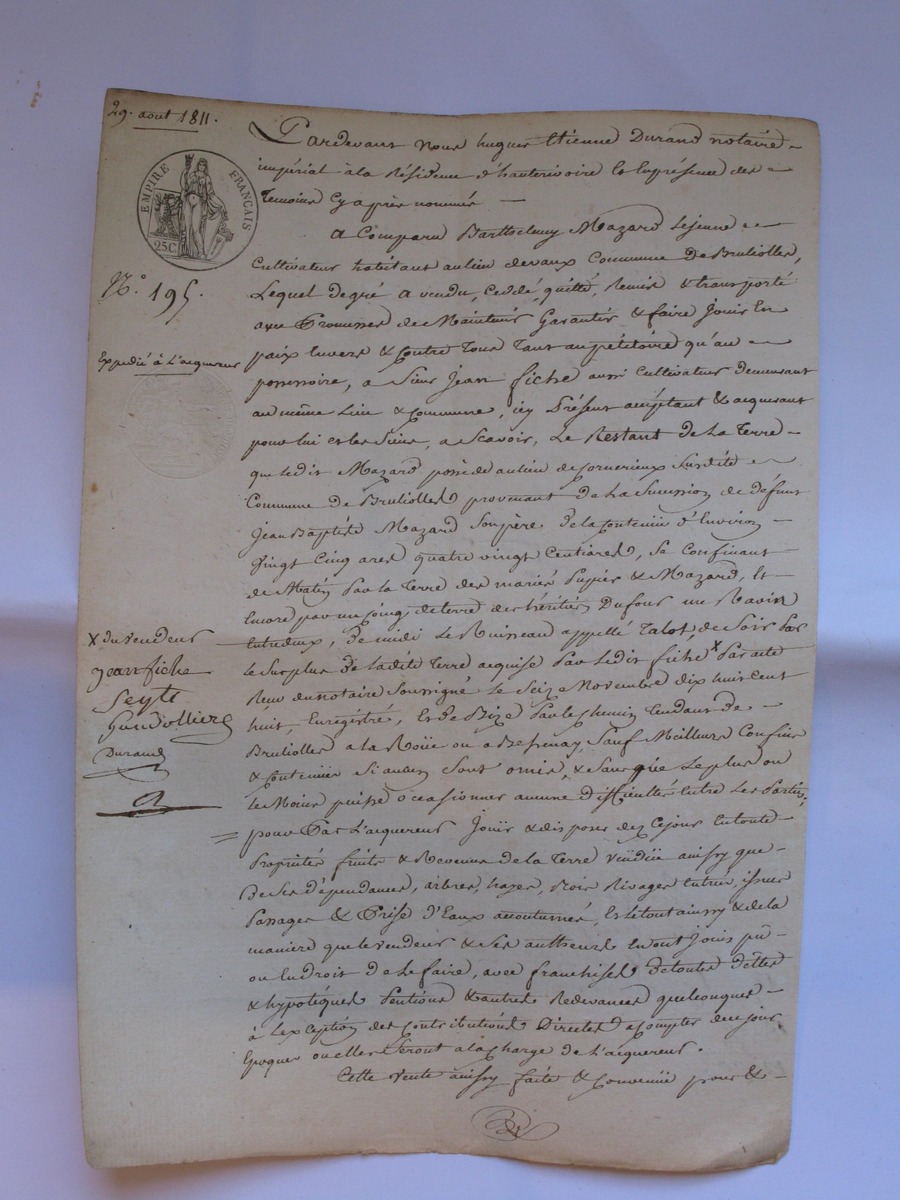 29. aout 1811.
EMPIRE FRANÇAIS
25C
N.° 195.
Expedié à L'acquereur
Pardevant Nous hugues Etienne Durand notaire
impérial à la Résidence d'hauterivoire Et Enprésence des
Temoins Cy après nommés
A Comparu Barthelemy Mazard Lejeune
Cultivateur habitant aulieu devaux Commune de Brullolles,
Lequel degré a vendu, Ceddé, quitté, Remis & transporté
avec Promesses de Maintenir Garantir & faire Jouir En
paix Envers & Contre Tous Tant aupetitoire qu'au
possessoire, a Sieur Jean fiche aussi Cultivateur demeurant
au même Lieu & Commune, icy Présent acceptant & acquerant
pour lui et les Siens, a Scavoir, Le Restant de La Terre
que Ledit Mazard possede aulieu de Susdite
Commune de Brullolles provenant de La Succession de défunt
Jean Baptiste Mazard Son père de la Contenüe d'Environ
Vingt Cinq ares quatre vingt Centiares, Se Confinant
de Matin Par la Terre des mariés Pupier & Mazard, Et
Encore par un Coing de terre des hérities Dufour un Ravin
Entredeux, De midi Le Ruisseau appellé Talot, de Soir Par
Le Surplus de Ladite Terre acquise Par Ledit fiche x Par acte
Reçu du notaire Soussigné Le Seize Novembre dix huit Cent
huit, Enregistré, Et de Bize Par Le Chemin Tendant de
Brullolles a la Roüe ou a Besenay, Sauf Meilleurs Confins
& Contenües Si aucuns Sont omis, & Sans que Le plus ou
Le Moins puisse occasionner aucune difficultés Entre Les Parties,
pour Par L'acquereur Joüir & disposer dez Cejour En toute
Propriétés fruits & Revenus de la Terre vendüe ainsy que
De Ses dépendances, arbres, hayes, Rivages Entrées, issues
Passages & Prise d'Eaux accoutumés, Et le tout ainsy & de la
maniere que le vendeur & Ses autheurs En ont Joüis pu
ou En droit de Le faire, avec franchises de toutes dettes
& hypotéques Pentions & autres Redevances quelconques
à L'exception des Contributions Directes a Compter de ce jour
Epoque ou elles Seront a la Charge de L'acquereur.
Cette vente ainsy faite & Convenüe pour &
x du vendeur
Jean fiche
Seyte
Durand